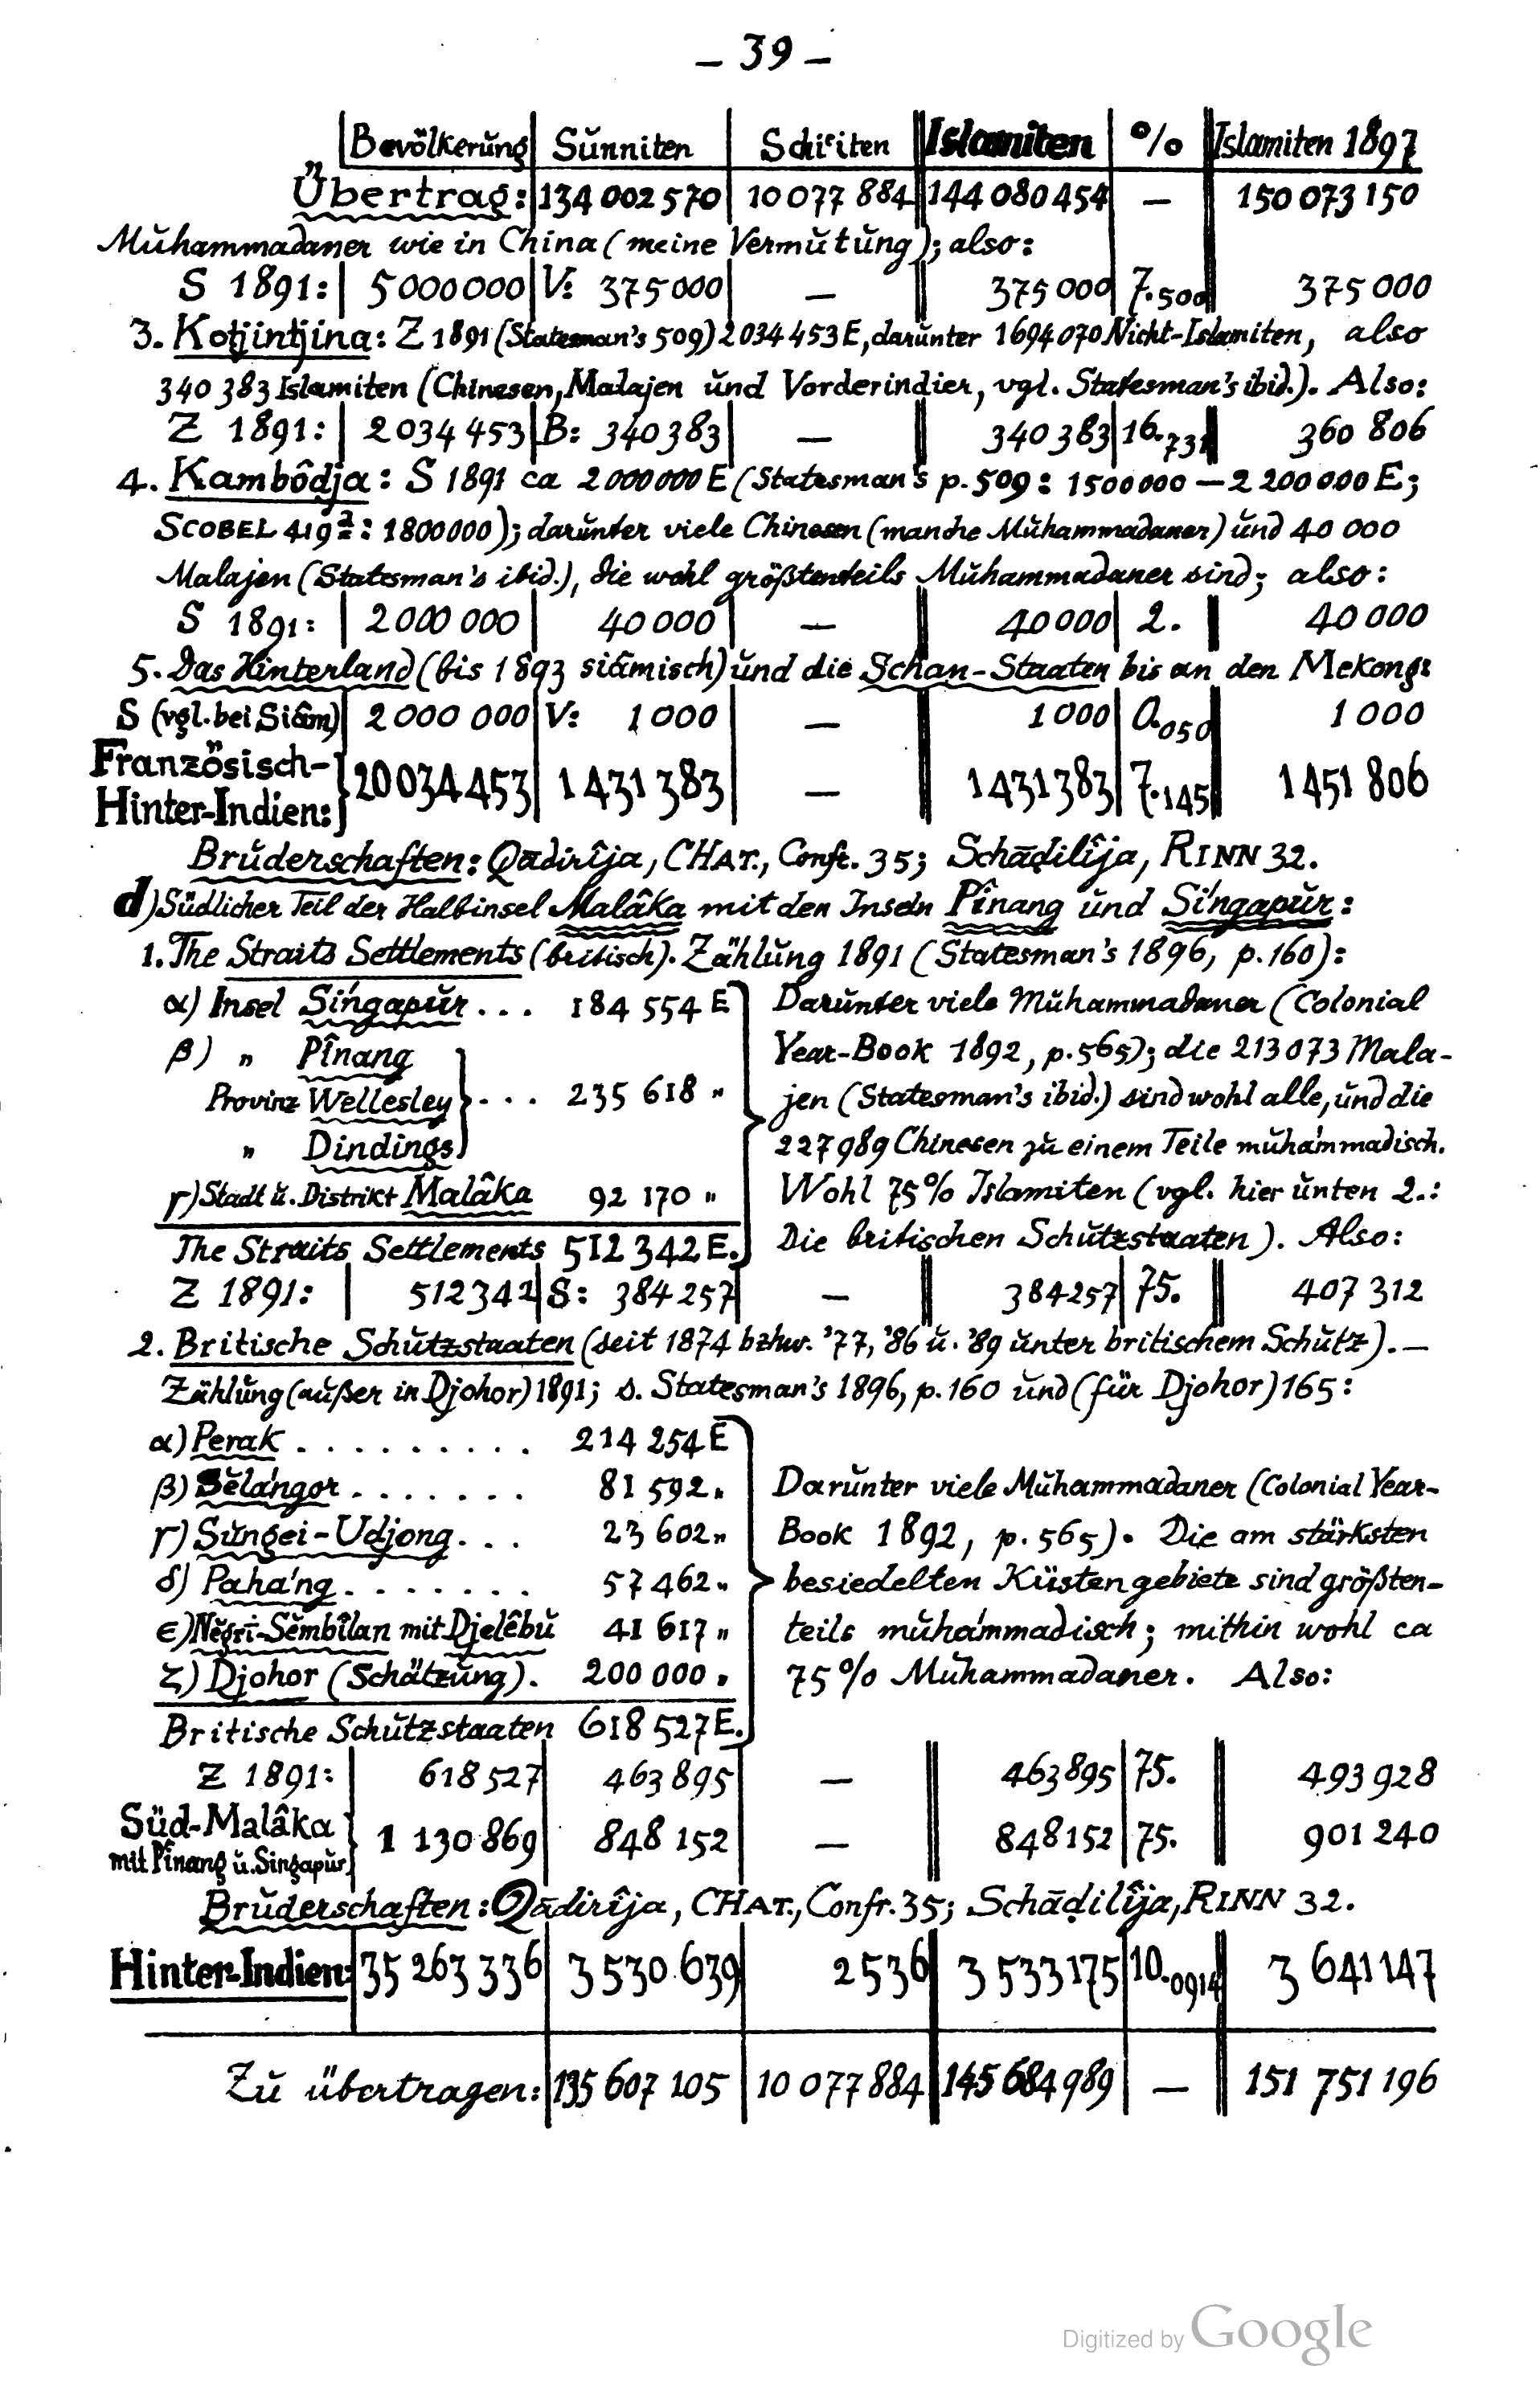 – 39 –
Bevölkerŭng Sŭnniten Schiʿiten Islamiten % Islamiten 1897
Übertrag: 134 002 570 10 077 884 144 080 454 — 150 073 150
Mŭhammadaner wie in China (meine Vermŭtŭng); also:
S 1891: 5 000 000 V: 375 000 — 375 000 7.500 375 000
3. Kotjintjina: Z 1891 (Statesman's 509) 2 034 453 E, darŭnter 1 694 070 Nicht-Islamiten, also
340 383 Islamiten (Chinesen, Malajen ŭnd Vorderindier, vgl. Statesman's ibid.). Also:
Z 1891: 2 034 453 B: 340 383 — 340 383 16.731 360 806
4. Kambôdja: S 1891 ca 2 000 000 E (Statesman's p. 509: 1 500 000 — 2 200 000 E;
SCOBEL 419²: 1 800 000); darŭnter viele Chinesen (manche Mŭhammadaner) ŭnd 40 000
Malajen (Statesman's ibid.), die wohl größtenteils Mŭhammadaner sind; also:
S 1891: 2 000 000 40 000 — 40 000 2. 40 000
5. Das Hinterland (bis 1893 siâmisch) ŭnd die Schan-Staaten bis an den Mekong:
S (vgl. bei Siâm) 2 000 000 V: 1 000 — 1 000 0.050 1 000
Französisch-
Hinter-Indien: 20 034 453 1 431 383 — 1 431 383 7.145 1 451 806
Brŭderschaften: Qādirîja, CHAT., Confr. 35; Schāḍilîja, RINN 32.
d) Südlicher Teil der Halbinsel Malâka mit den Inseln Pînang ŭnd Síngapŭr:
1. The Straits Settlements (britisch). Zählŭng 1891 (Statesman's 1896, p. 160):
α) Insel Síngapŭr . . . 184 554 E
β) „ Pînang
Provinz Wellesley . . . 235 618 „
„ Dindings
γ) Stadt ŭ. Distrikt Malâka 92 170 „
The Straits Settlements 512 342 E.
Darŭnter viele Mŭhammadaner (Colonial
Year-Book 1892, p. 565); die 213 073 Mala-
jen (Statesman's ibid.) sind wohl alle, ŭnd die
227 989 Chinesen zŭ einem Teile mŭhámmadisch.
Wohl 75 % Islamiten (vgl. hier ŭnten 2.:
Die britischen Schŭtzstaaten). Also:
Z 1891: 512 342 S: 384 257 — 384 257 75. 407 312
2. Britische Schŭtzstaaten (seit 1874 bzhw. '77, '86 ŭ. '89 ŭnter britischem Schŭtz). —
Zählŭng (aŭßer in Djohor) 1891; s. Statesman's 1896, p. 160 ŭnd (für Djohor) 165:
α) Perak . . . . . . . . . 214 254 E
β) Sĕlángor . . . . . . . 81 592 „
γ) Sŭngei-Udjong . . . 23 602 „
δ) Paháng . . . . . . . 57 462 „
ϵ) Nĕgri-Sĕmbîlan mit Djelêbŭ 41 617 „
ζ) Djohor (Schätzŭng). 200 000 „
Britische Schŭtzstaaten 618 527 E.
Darŭnter viele Mŭhammadaner (Colonial Year-
Book 1892, p. 565). Die am stärksten
besiedelten Küstengebiete sind größten-
teils mŭhámmadisch; mithin wohl ca
75 % Mŭhammadaner. Also:
Z 1891: 618 527 463 895 — 463 895 75. 493 928
Süd-Malâka
mit Pînang ŭ. Singapŭr 1 130 869 848 152 — 848 152 75. 901 240
Brŭderschaften: Qādirîja, CHAT., Confr. 35; Schāḍilîja, RINN 32.
Hinter-Indien: 35 263 336 3 530 639 2 536 3 533 175 10.0914 3 641 147
Zŭ übertragen: 135 607 105 10 077 884 145 684 989 — 151 751 196
Digitized by Google